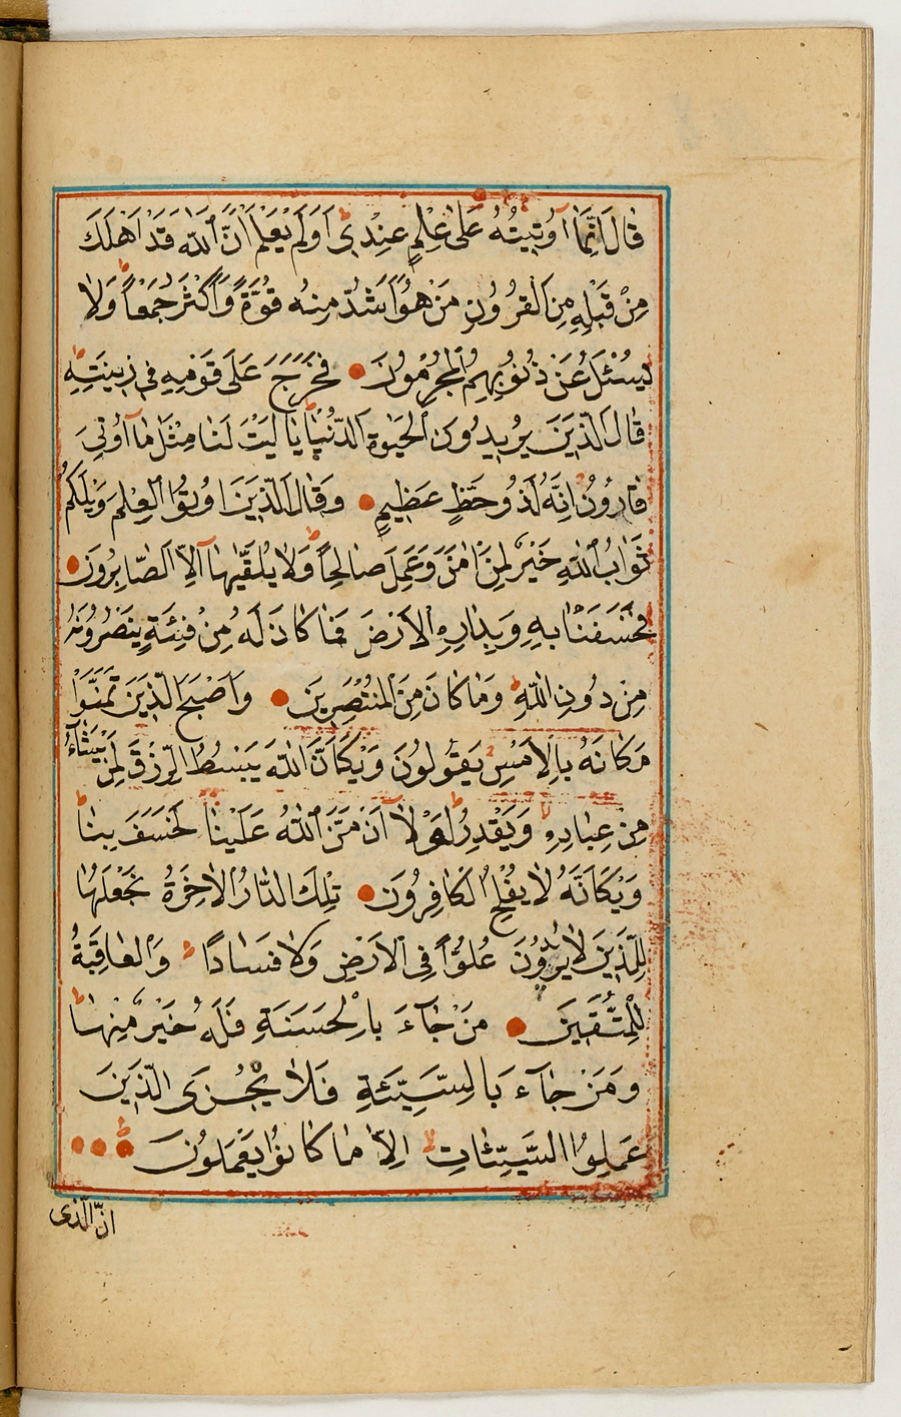 قَالَ اِنَّمَا اُوتِيتُهُ عَلٰى عِلْمٍ عِنْدِى اَوَلَمْ يَعْلَمْ اَنَّ اللّٰهَ قَدْ اَهْلَكَ
مِنْ قَبْلِهِ مِنَ الْقُرُونِ مَنْ هُوَ اَشَدُّ مِنْهُ قُوَّةً وَاَكْثَرُ جَمْعًا وَلَا
يُسْئَلُ عَنْ ذُنُوبِهِمُ الْمُجْرِمُونَ فَخَرَجَ عَلٰى قَوْمِهِ فِى زِينَتِهِ
قَالَ الَّذِينَ يُرِيدُونَ الْحَيٰوةَ الدُّنْيَا يَا لَيْتَ لَنَا مِثْلَ مَا اُوتِىَ
قَارُونُ اِنَّهُ لَذُو حَظٍّ عَظِيمٍ وَقَالَ الَّذِينَ اُوتُوا الْعِلْمَ وَيْلَكُمْ
ثَوَابُ اللّٰهِ خَيْرٌ لِمَنْ اٰمَنَ وَعَمِلَ صَالِحًا وَلَا يُلَقّٰيهَا اِلَّا الصَّابِرُونَ
فَخَسَفْنَا بِهِ وَبِدَارِهِ الْاَرْضَ فَمَا كَانَ لَهُ مِنْ فِئَةٍ يَنْصُرُونَهُ
مِنْ دُونِ اللّٰهِ وَمَا كَانَ مِنَ الْمُنْتَصِرِينَ وَاَصْبَحَ الَّذِينَ تَمَنَّوْا
مَكَانَهُ بِالْاَمْسِ يَقُولُونَ وَيْكَاَنَّ اللّٰهَ يَبْسُطُ الرِّزْقَ لِمَنْ يَشَاءُ
مِنْ عِبَادِهِ وَيَقْدِرُ لَوْلَا اَنْ مَنَّ اللّٰهُ عَلَيْنَا لَخَسَفَ بِنَا
وَيْكَاَنَّهُ لَا يُفْلِحُ الْكَافِرُونَ تِلْكَ الدَّارُ الْاٰخِرَةُ نَجْعَلُهَا
لِلَّذِينَ لَا يُرِيدُونَ عُلُوًّا فِى الْاَرْضِ وَلَا فَسَادًا وَالْعَاقِبَةُ
لِلْمُتَّقِينَ مَنْ جَاءَ بِالْحَسَنَةِ فَلَهُ خَيْرٌ مِنْهَا
وَمَنْ جَاءَ بِالسَّيِّئَةِ فَلَا يُجْزَى الَّذِينَ
عَمِلُوا السَّيِّئَاتِ اِلَّا مَا كَانُوا يَعْمَلُونَ
اِنَّ الَّذِى